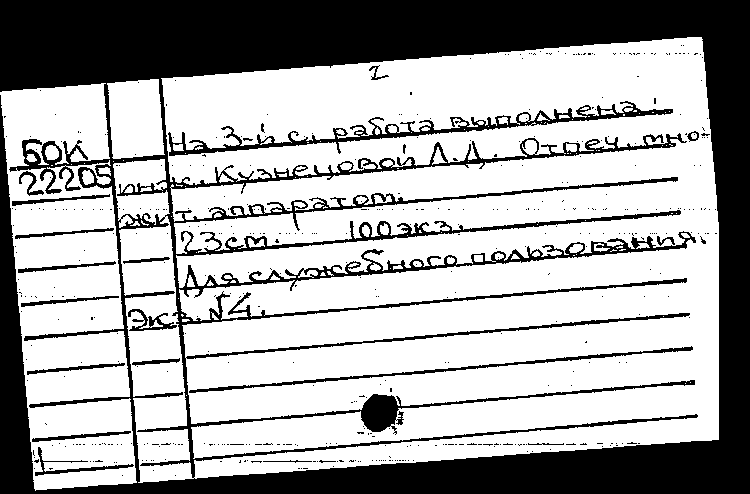 2
На 3-й с. работа выполнена:
БОК
22205 инж. Кузнецовой Л.Д. Отпеч. мно-
жит. аппаратом.
23 см. 100 экз.
Для служебного пользования.
Экз. №4.
1